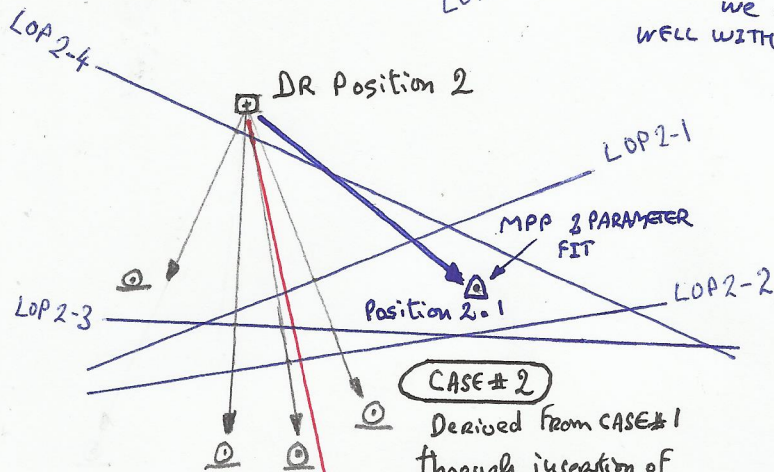 we
WELL WITH
LOP 2-4
DR Position 2
LOP2-1
MPP 2 PARAMETER
FIT
LOP2-2
Position 2.1
LOP2-3
CASE# 2
Derived From CASE#1
through insertion of